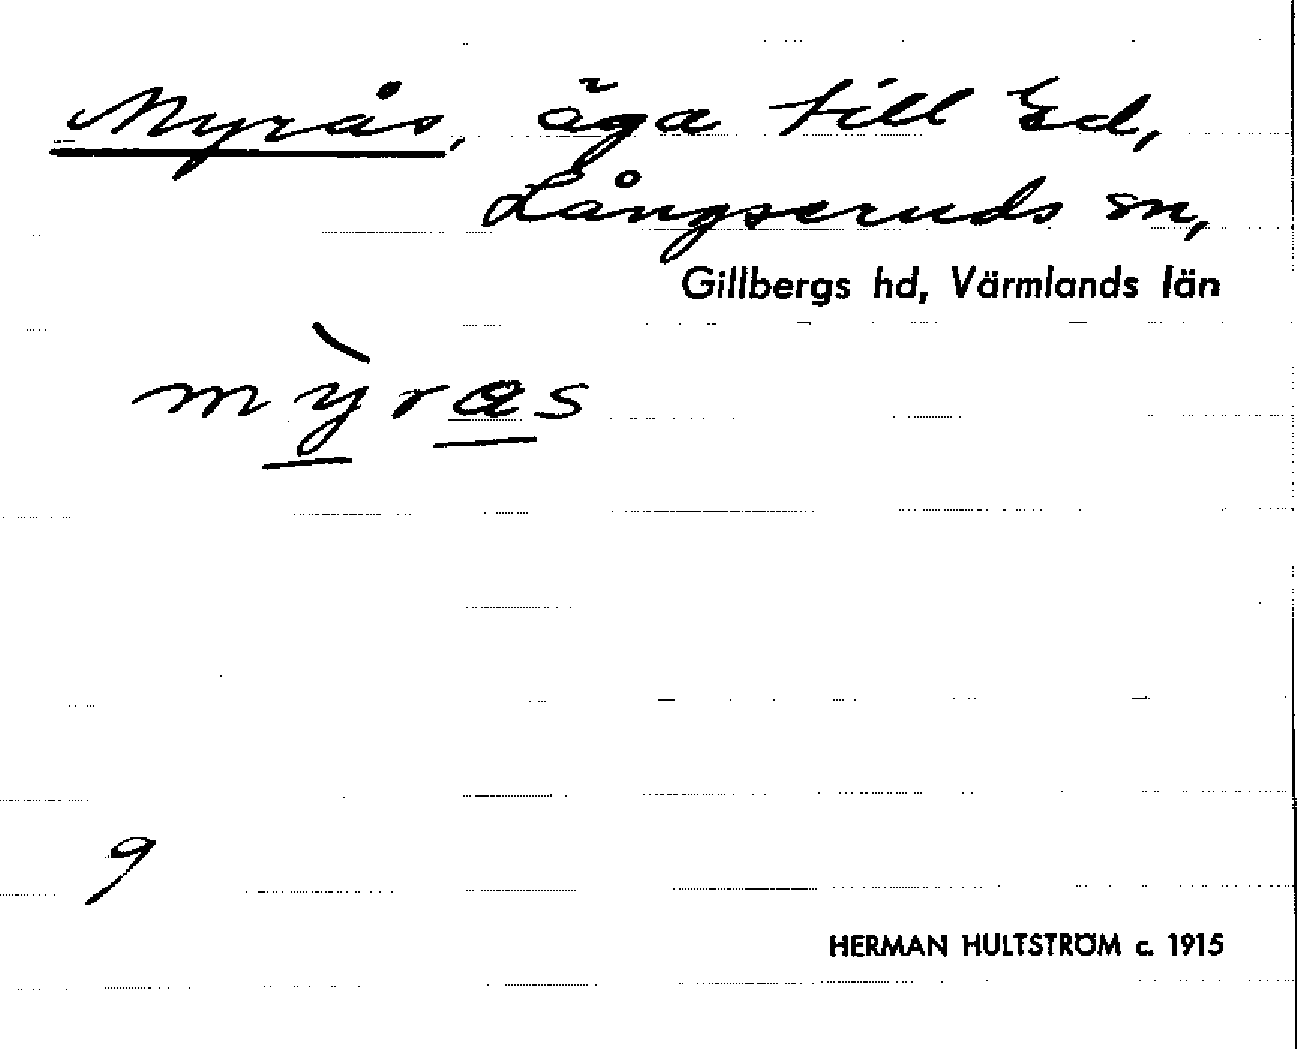 Myrås, äga till Ed,
Långseruds sn,
Gillbergs hd, Värmlands län
mỳras
9
HERMAN HULTSTRÖM c. 1915